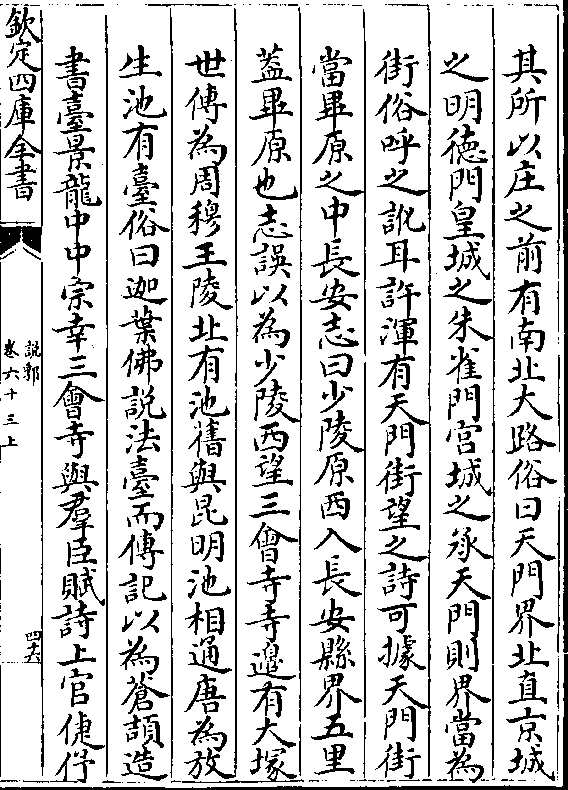 其所以庄之前有南北大路俗曰天門界北直京城
之明德門皇城之朱雀門宫城之承天門則界當為
街俗呼之訛耳許渾有天門街望之詩可據天門街
當畢原之中長安志曰少陵原西入長安縣界五里
葢畢原也志誤以為少陵西望三會寺寺邉有大塚
世傳為周穆王陵北有池舊與昆明池相通唐為放
生池有臺俗曰迦葉佛説法臺而傳記以為蒼頡造
書臺景龍中中宗幸三會寺與羣臣賦詩上官倢伃
欽定四庫全書
説郛
卷六十三上
四六